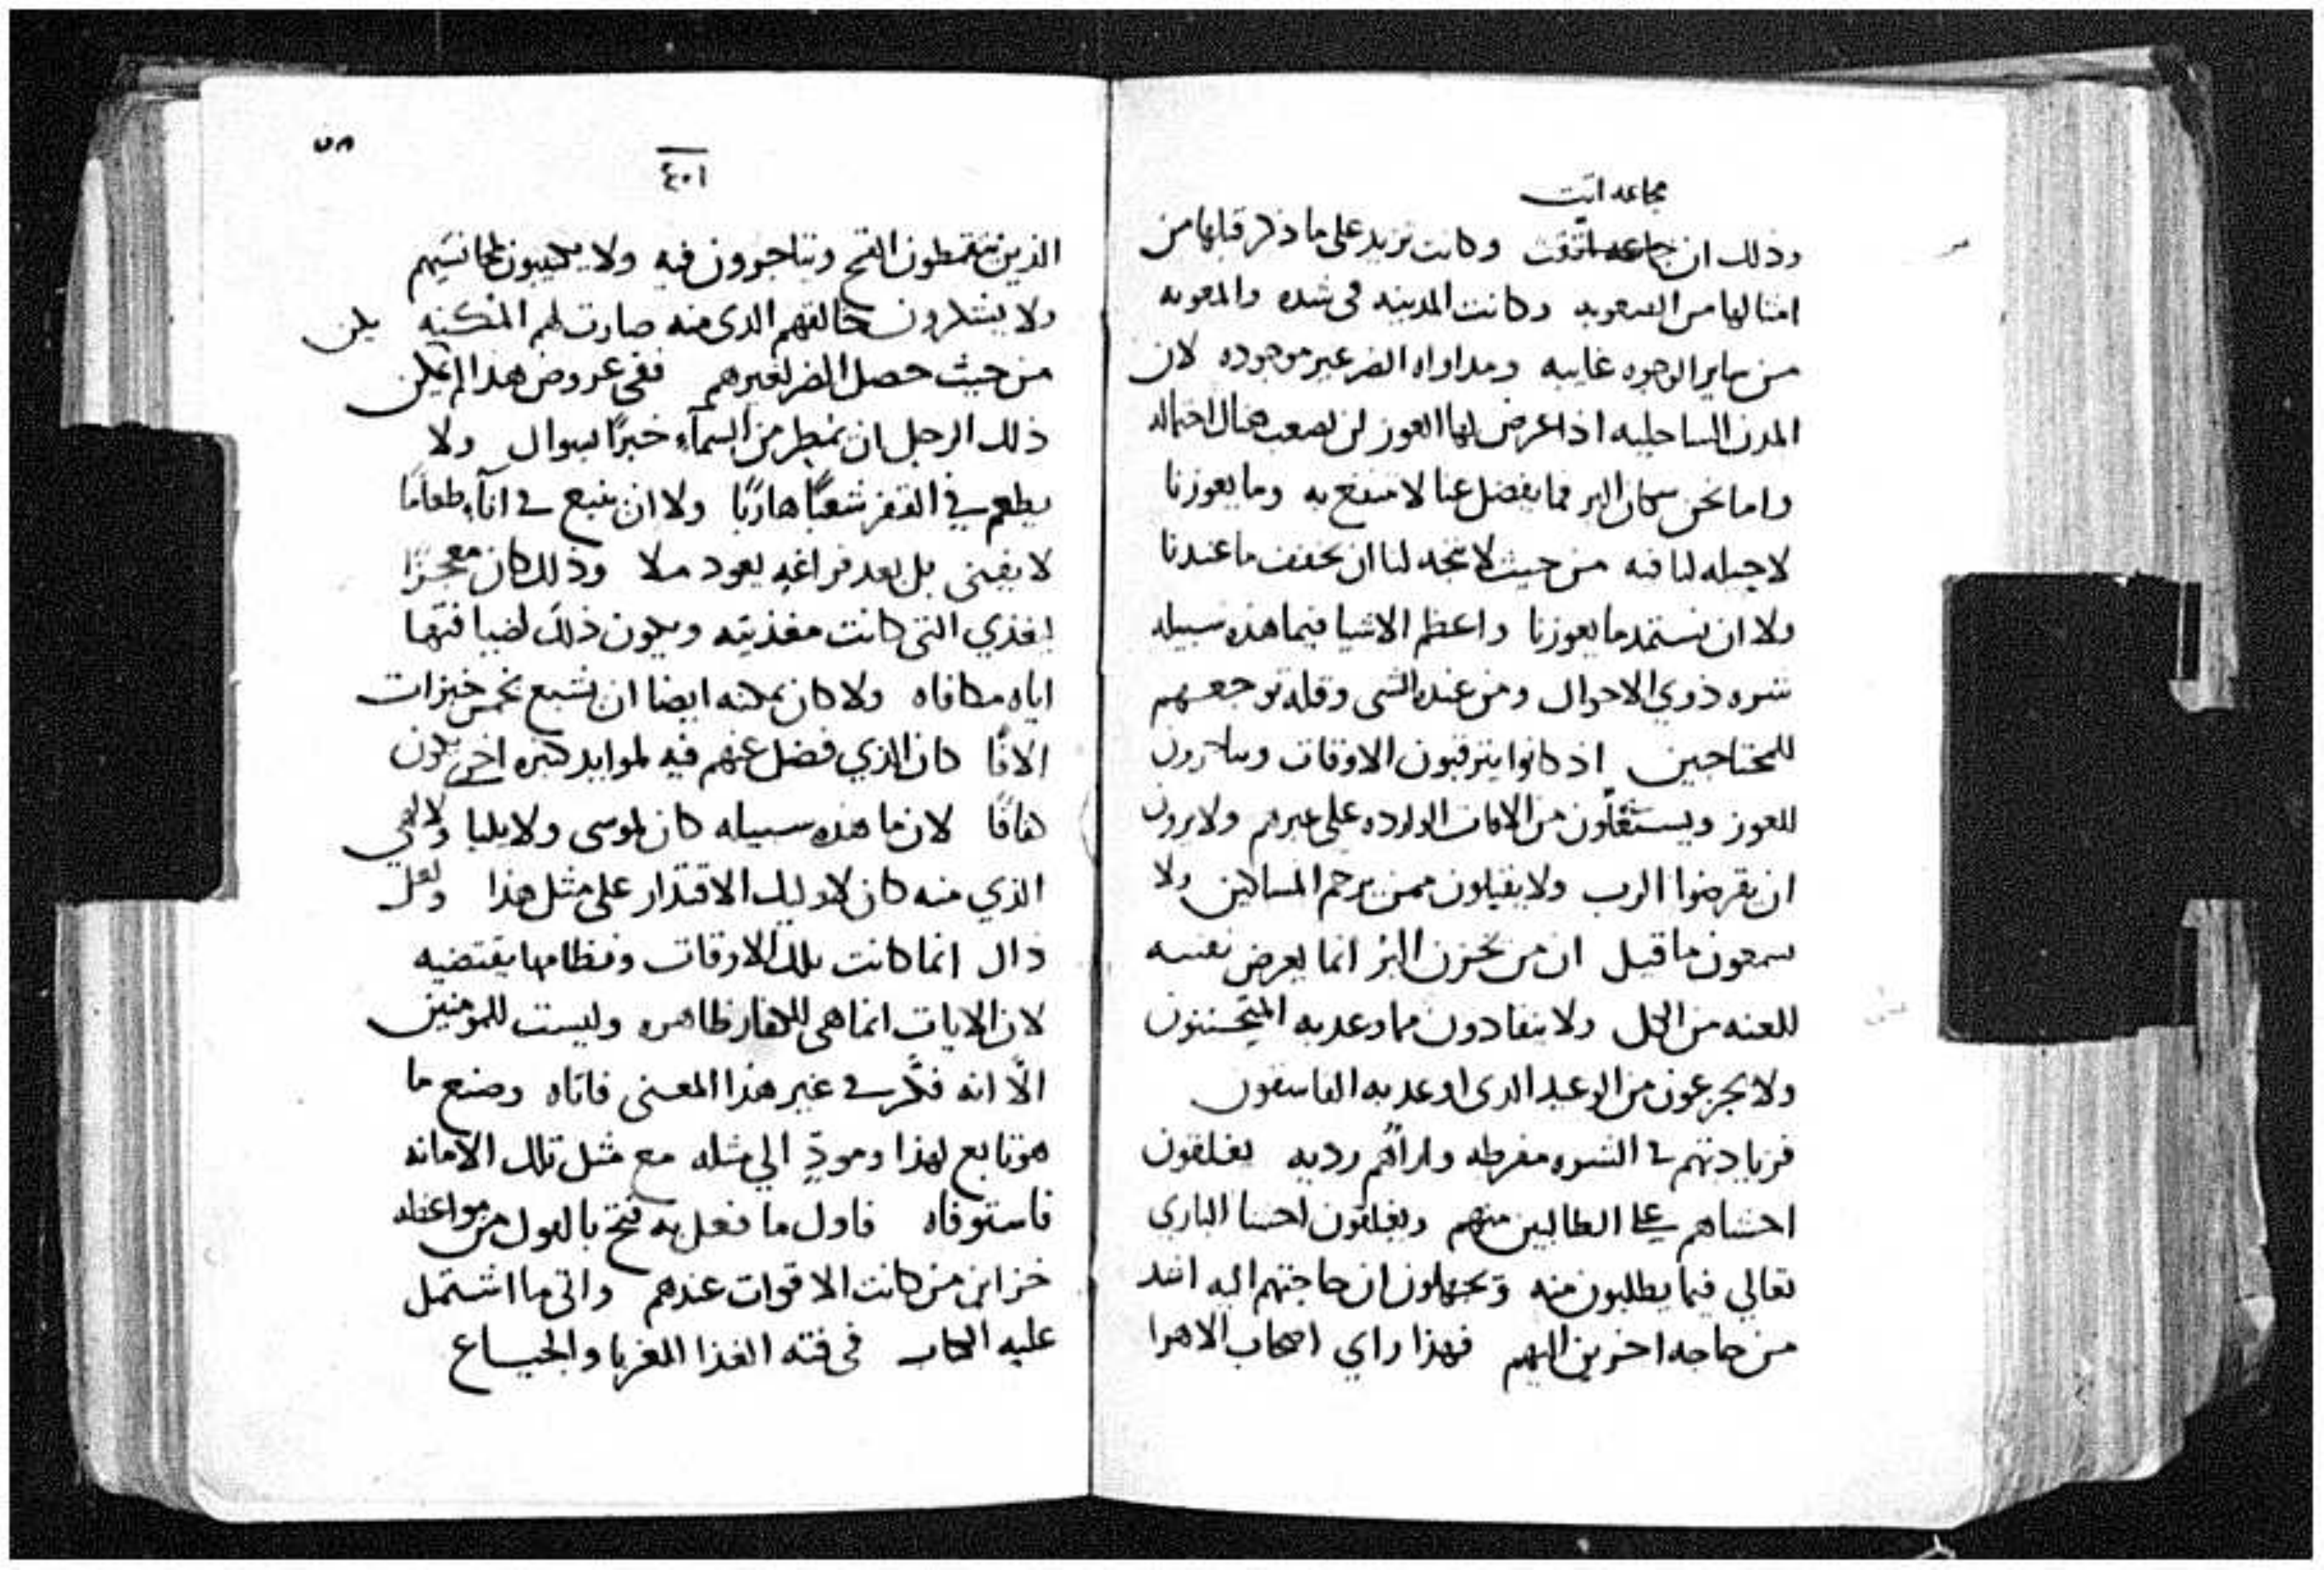 مجاعه اتت
وذلك ان جاعه اتفقت وكانت تزيد على ما ذكر قبلها من
امثالها من الصعوبه وكانت المدينه فى شده والمعونه
من ساير الوجوه غايبه ومداواه الضر غير موجوده لان
المدن الساحليه اذا عرض لها العوز لن يصعب هنال احتماله
واما نحن سكان البر فما يفضل عنا لا ننتفع به وما يعوزنا
لا حيله لنا فيه من حيث لا نتجه لنا ان نخفف ما عندنا
ولا ان نستمد ما يعوزنا واعظم الاشيا فيما هذه سبيله
شره ذوي الاحوال ومن عنده الشى وقله توجعهم
للمحتاجين اذ كانوا يترقبون الاوقات ويتاجرون
للعوز ويستغلون من الافات الوارده على غيرهم ولا يرون
ان يقرضوا الرب ولا يقبلون ممن يرحم المساكين ولا
يسمعون ما قيل ان من يخزن البر انما يعرض نفسه
للعنه من الكل ولا ينقادون مما وعد به المتحسنون
ولا يجزعون من الوعيد الدى اوعد به الفاسقون
فزيادتهم في الشره مفرطه واراهم رديه يغلقون
احشاهم على الطالبين منهم ويغلقون احشا البارى
تعالي فيما يطلبون منه ويجهلون ان حاجتهم اليه اشد
من حاجه اخرين اليهم فهذا راي اصحاب الاهرا
٥٨
٤٠١
الذين يتقمطون القمح ويتاجرون فيه ولا
ولا يشكرون خالقهم الدى منه صارت لهم المكنه يكن
من حيث حصل الضر لغيرهم ففى عروض هدا لم يمكن
ذلك الرجل ان يمطر من السمآء خبزًا بسوال ولا
يطعم في القفر شعبًا هاربًا ولا ان ينبع في انآء طعامًا
لا يفنى بل بعد فراغه يعود ملا وذلك كان معجزًا
ليغذي التى كانت مغذيته ويكون ذلك لضيافتها
اياه مكافاه ولا كان يمكنه ايضا ان يشبع بخمس خبزات
الافًا كان الذي فضل عنهم فيه لموايد كثيره اخر يكون
كفافًا لان ما هذه سبيله كان لموسى ولايليا ولالهي
الذي منه كان لاوليك الاقتدار على مثل هذا ولعل
ذال انما كانت تلك الاوقات ونظامها يقتضيه
لان الايات انما هى للكفار ظاهره وليست للمومنين
الّا انه فكّر في غير هذا المعنى فاتاه وصنع ما
هو تابع لهذا ومودٍّ الي مثله مع مثل تلك الامانه
فاستوفاه فاول ما فعل به فتح بالقول من مواعظه
خزاين من كانت الاقوات عندهم واتى ما اشتمل
عليه الكتاب فى فته الغذا للغربا والجيـاع